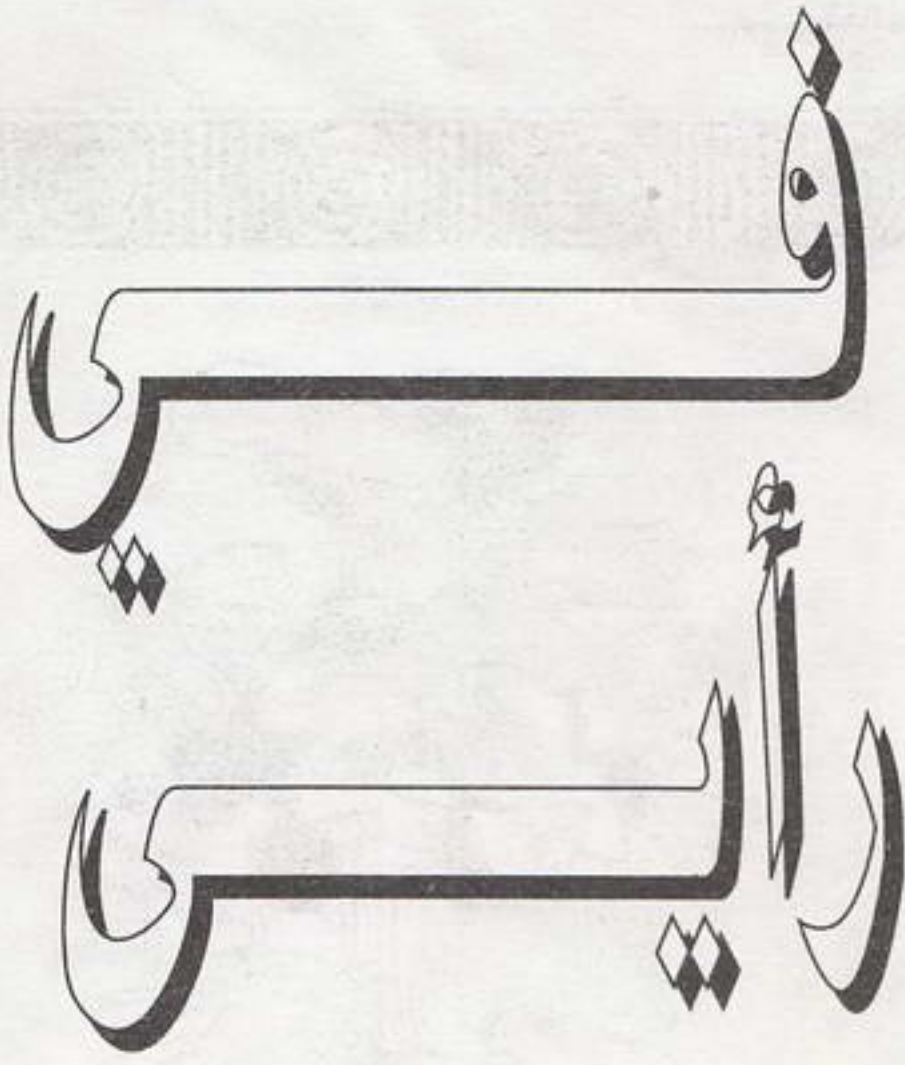 في
رأيي